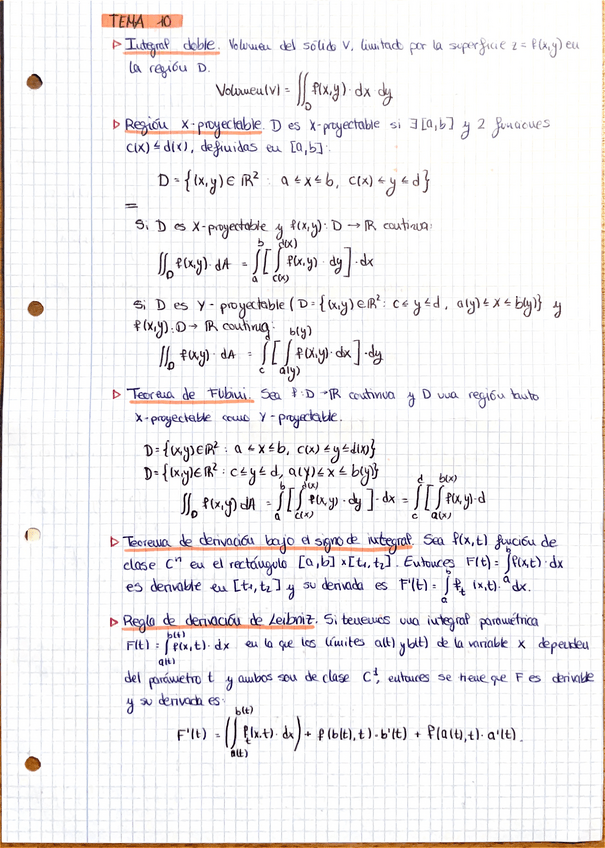 TEMA 10
▷ Integral doble. Volumen del sólido V, limitado por la superficie z = f(x,y) en
la región D.
Volumen(V) = ∬_D f(x,y)· dx dy
▷ Región X-proyectable. D es X-proyectable si ∃ [a,b] y 2 funciones
c(x) ≤ d(x), definidas en [a,b]:
D = {(x,y) ∈ ℝ² : a ≤ x ≤ b, c(x) ≤ y ≤ d}
=
Si D es X-proyectable y f(x,y): D → ℝ continua:
∬_D f(x,y)· dA = ∫_a^b [ ∫_{c(x)}^{d(x)} f(x,y)· dy ]· dx
Si D es Y-proyectable (D = {(x,y) ∈ ℝ² : c ≤ y ≤ d, a(y) ≤ x ≤ b(y)} y
f(x,y): D → ℝ continua:
∬_D f(x,y)· dA = ∫_c^d [ ∫_{a(y)}^{b(y)} f(x,y)· dx ]· dy
▷ Teorema de Fubini. Sea f: D → ℝ continua y D una región tanto
X-proyectable como Y-proyectable.
D = {(x,y) ∈ ℝ² : a ≤ x ≤ b, c(x) ≤ y ≤ d(x)}
D = {(x,y) ∈ ℝ² : c ≤ y ≤ d, a(y) ≤ x ≤ b(y)}
∬_D f(x,y) dA = ∫_a^b [ ∫_{c(x)}^{d(x)} f(x,y)· dy ]· dx = ∫_c^d [ ∫_{a(x)}^{b(x)} f(x,y)· d
▷ Teorema de derivación bajo el signo de integral. Sea f(x,t) función de
clase Cⁿ en el rectángulo [a,b] × [t₁,t₂]. Entonces F(t) = ∫_a^b f(x,t)· dx
es derivable en [t₁,t₂] y su derivada es F'(t) = ∫_a^b f_t (x,t)· dx.
▷ Regla de derivación de Leibniz. Si tenemos una integral paramétrica
F(t) = ∫_{a(t)}^{b(t)} f(x,t)· dx en la que los límites a(t) y b(t) de la variable x dependen
del parámetro t y ambos son de clase C¹, entonces se tiene que F es derivable
y su derivada es:
F'(t) = ( ∫_{a(t)}^{b(t)} f_t(x,t)· dx ) + f(b(t),t)· b'(t) + f(a(t),t)· a'(t).